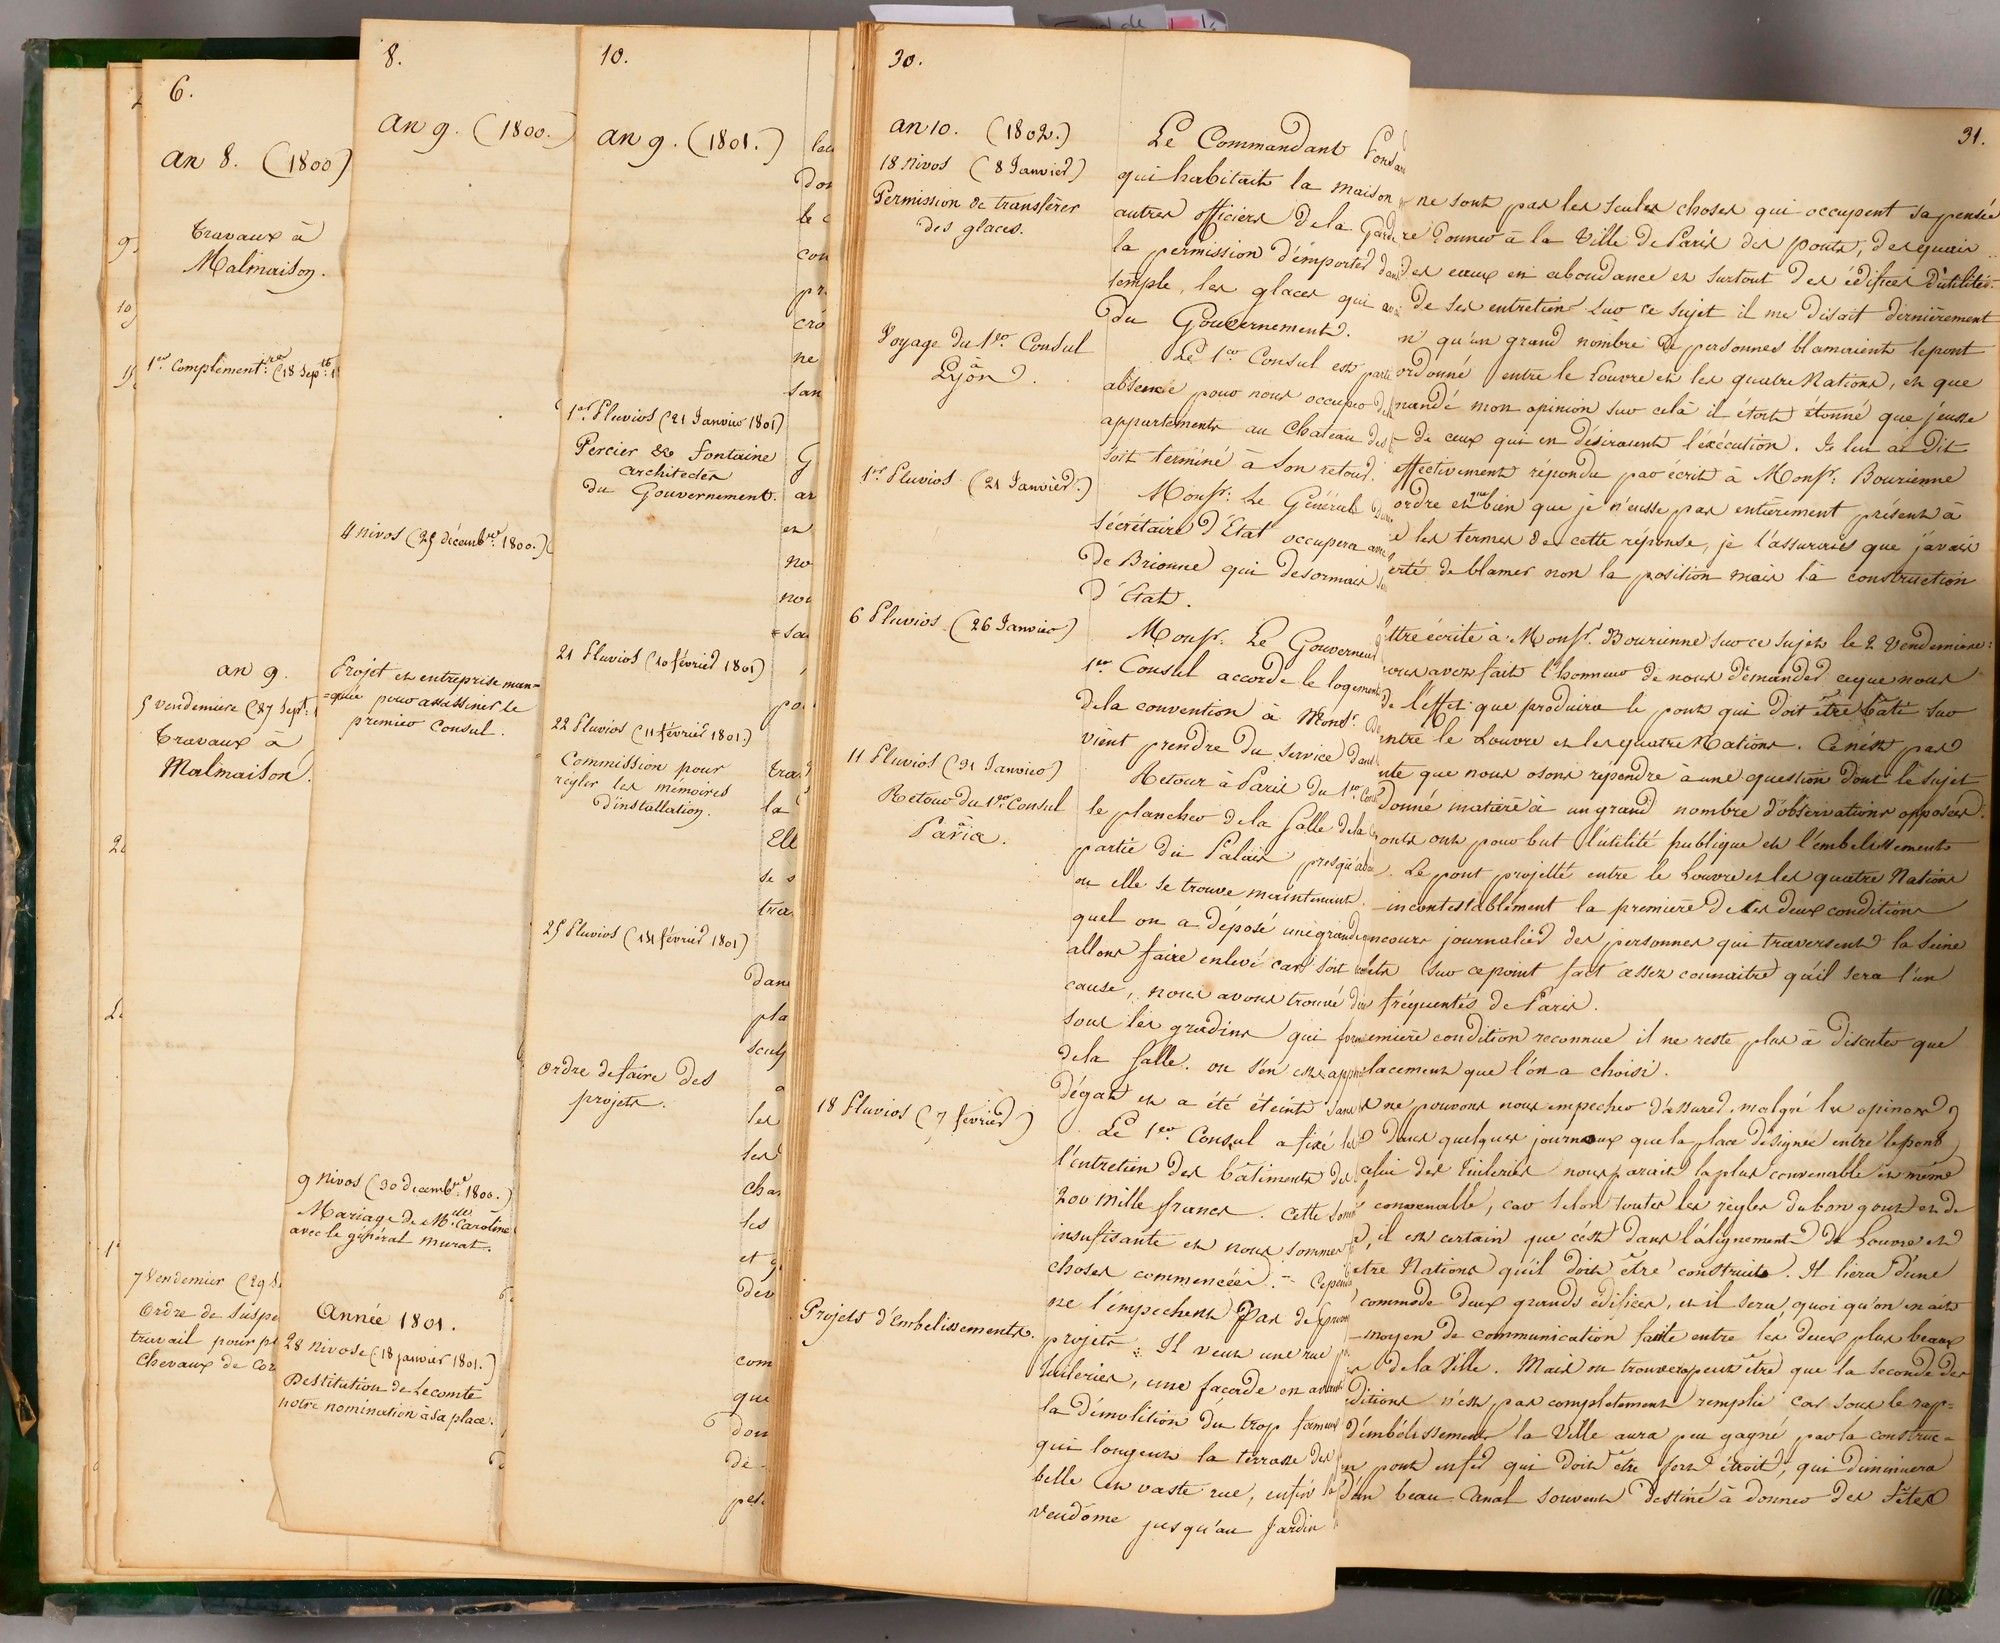 6.
an 8. (1800)
Travaux à
Malmaison.
1er Complément.re (18 Sep.bre
an 9.
5 vendemiere (27 Sept.
Travaux à
Malmaison.
7 Vendemier (29 S
Ordre de Suspe
travail pour p
Chevaux de Co
8.
an 9. (1800.)
4 nivos (25 décemb.re 1800.)
Projet et entreprise man=
=quée pour assassiner le
premier Consul.
9 Nivos (30 decemb.re 1800.)
Mariage de Mlle Caroline
avec le général Murat.
Année 1801.
28 nivose (18 janvier 1801.)
Destitution de Lecomte
notre nomination à sa place.
10.
an 9. (1801.)
1er Pluvios (21 Janvier 1801)
Percier & Fontaine
architectes
du Gouvernement.
21 Pluvios (10 février 1801)
22 Pluvios (11 février 1801.)
Commission pour
régler les mémoires
d'installation.
25 Pluvios (14 février 1801)
Ordre de faire des
projets.
30.
an 10. (1802.)
18 Nivos (8 Janvier)
Permission de transférer
des glaces.
Voyage du 1er Consul
à
Lyon.
1er Pluvios (21 Janvier.)
6 Pluvios (26 Janvier)
11 Pluvios (31 Janvier)
Retour du 1er Consul
à
Paris.
18 Pluvios (7 février)
Projets d'Embelissements.
Le Commandant
qui habitait la maison
autres officiers de la Garde
la permission d'emporter
temple, les glaces qui
du Gouvernement.
Le 1er Consul est parti
absence pour nous occuper
appartements au Chateau des
soit terminé à son retour.
Monsr. Le Général
Sécrétaire d'Etat occupera
de Brionne qui desormais
d'Etat.
Monsr. Le Gouverneur
1er Consul accorde le logement
de la convention à Monsr.
vient prendre du service dans
Retour à Paris du 1er
le plancher de la Salle de la
partie du Palais presqu'
ou elle se trouve maintenant.
quel on a déposé une grande
allons faire enlevé car soit
cause, nous avons trouvé
sous les gradins qui
de la Salle. on s'en est
dégat et a été éteint
Le 1er Consul a fixé
l'entretien des bâtiments
200 mille francs. Cette
insufisante et nous sommes
choses commencées. -
ne l'empechent Pas de
projets. Il veut une rue
tuileries, une façade en
la démolition du trop fameux
qui longeut la terrasse des
belle et vaste rue, enfin
Vendome jusqu'au Jardin
31.
ne sont pas les seules choses qui occupent sa pensée
donner à la Ville de Paris des ponts, des quais
des eaux en abondance et surtout des édifices d'utilité.
de ses entretiens sur ce sujet il me disait dernièrement
qu'un grand nombre de personnes blamaient le pont
ordonné entre le Louvre et les quatre Nations, et que
mandé mon opinion sur celà il étoit étonné que j'eusse
de ceux qui en désiraient l'éxécution. Je lui ai dit
effectivement répondu par écrit à Monsr. Bourienne
ordre et que bien que je n'eusse pas entièrement présent à
les termes de cette réponse, je l'assurais que j'avais
de blamer non la position mais la construction
écrite à Monsr. Bourienne sur ce sujet le 2 Vendemiere:
vous avez fait l'honneur de nous demander ce que nous
de l'effet que produira le pont qui doit être bâti sur
entre le Louvre et les quatre Nations. Ce n'est pas
que nous osons répondre à une question dont le sujet
donné matière à un grand nombre d'observations opposées.
ont pour but l'utilité publique et l'embelissement
Le pont projetté entre le Louvre et les quatre Nations
incontestablement la première de ces deux conditions
journalier des personnes qui traversent la Seine
sur ce point fait assez connaitre qu'il sera l'un
fréquentés de Paris.
condition reconnue il ne reste plus à discuter que
que l'on a choisi.
ne pouvons nous empecher d'assurer malgré les opinions
dans quelques journaux que la place désignée entre le pont
celui des Tuileries nous parait la plus convenable et même
convenable, car selon toutes les règles du bon gout et de
il est certain que c'est dans l'alignement du Louvre et
Nations qu'il doit être construit. Il liera d'une
commode deux grands édifices, et il sera, quoi qu'on en ait
moyen de communication faite entre les deux plus beaux
de la Ville. Mais on trouvera peut être que la seconde des
n'est pas completement remplie car sous le rap=
d'embélissement la Ville aura peu gagné par la construc=
pont en fer qui doit être fort étroit, qui diminuera
d'un beau Canal souvent destiné à donner des Fêtes